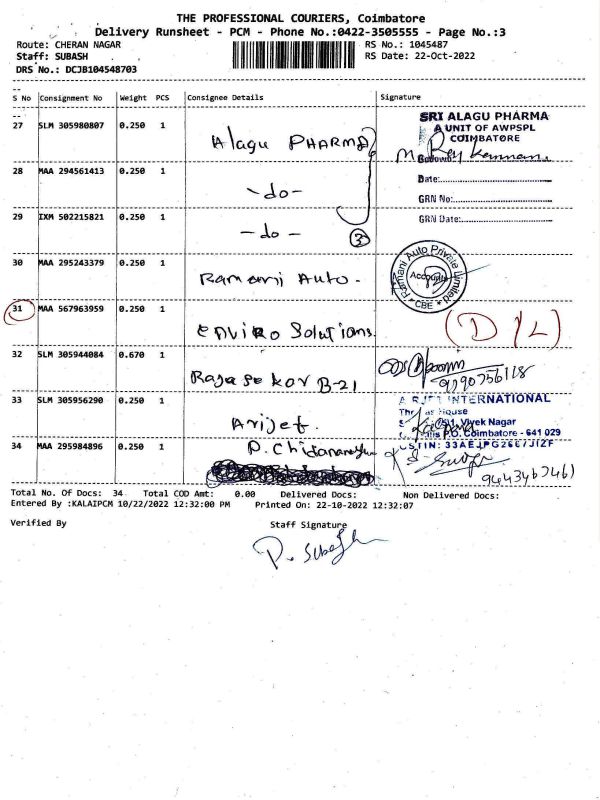 THE PROFESSIONAL COURIERS, Coimbatore
Delivery Runsheet - PCM - Phone No.:0422-3505555 - Page No.:3
Route: CHERAN NAGAR
RS No.: 1045487
Staff: SUBASH
RS Date: 22-Oct-2022
DRS No.: DCJB104548703
S No Consignment No Weight PCS Consignee Details Signature
27 SLM 305980807 0.250 1 Alagu PHARMA
SRI ALAGU PHARMA
A UNIT OF AWPSPL
COIMBATORE
28 MAA 294561413 0.250 1 -do-
Date:
GRN No:
29 IXM 502215821 0.250 1 -do- 3
GRN Date:
30 MAA 295243379 0.250 1 Ramani Auto.
Ramani Auto Private Limited
Accounts
CBE
31 MAA 567963959 0.250 1 enviro Solutions.
(D/L)
32 SLM 305944084 0.670 1 Rajasekar B-21
9790756118
33 SLM 305956290 0.250 1 Arijet.
INTERNATIONAL
House
Vivek Nagar
P.O. Coimbatore - 641 029
34 MAA 295984896 0.250 1
Total No. Of Docs: 34 Total COD Amt: 0.00 Delivered Docs: Non Delivered Docs:
Entered By :KALAIPCM 10/22/2022 12:32:00 PM Printed On: 22-10-2022 12:32:07
Verified By Staff Signature
P. Subash